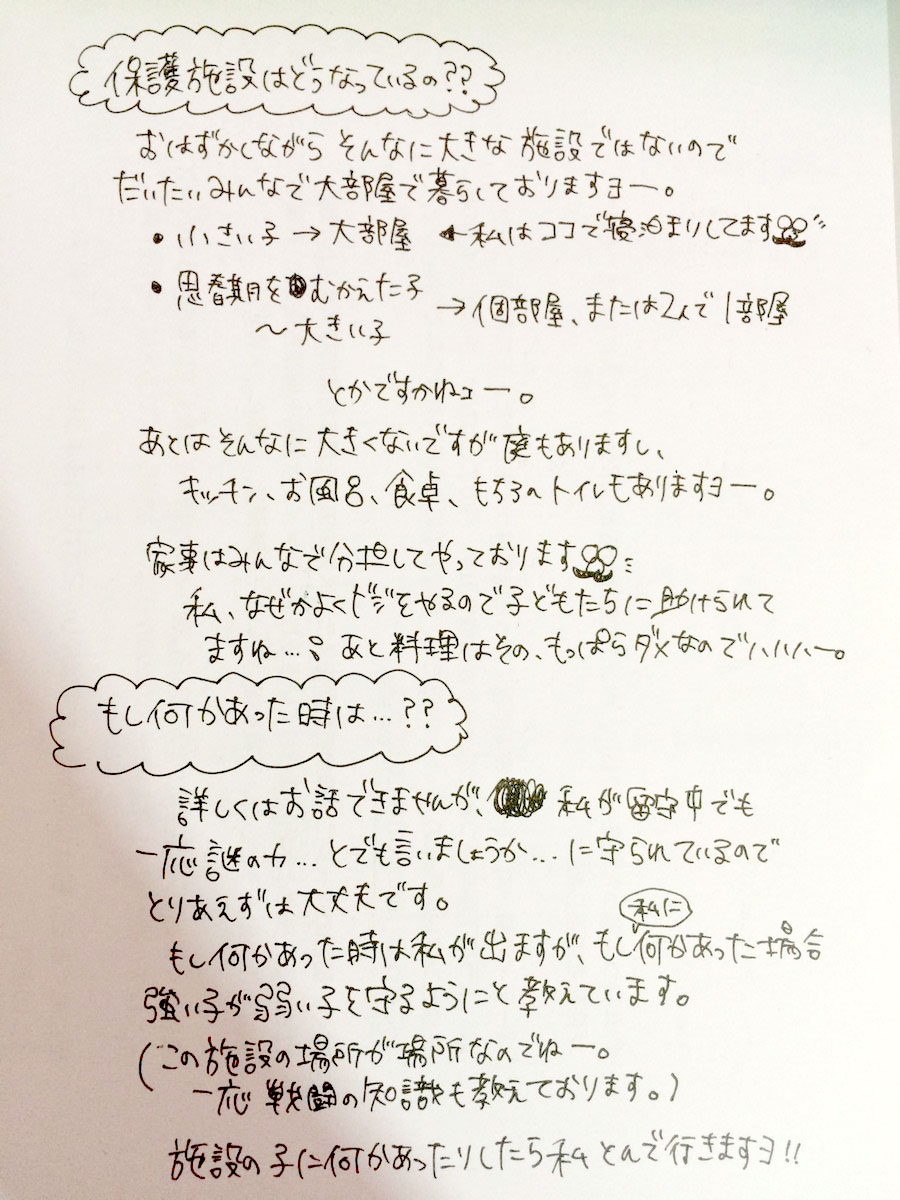 保護施設はどうなっているの??
おはずかしながら そんなに大きな施設ではないので
だいたいみんなで大部屋で暮らしておりますヨー。
・小さい子→大部屋 ←私はココで寝泊まりしてます
・思春期をむかえた子
〜大きい子
→個部屋、または2人で1部屋
とかですかねェー。
あとはそんなに大きくないですが庭もありますし、
キッチン、お風呂、食卓、もちろんトイレもありますヨー。
家事はみんなで分担してやっております
私、なぜかよくドジをやるので子どもたちに助けられて
ますね…; あと料理はその、もっぱらダメなのでハハハー。
もし何かあった時は…??
詳しくはお話できませんが、私が留守中でも
一応謎の力…とでも言いましょうか…に守られているので
とりあえずは大丈夫です。
もし何かあった時は私が出ますが、もし私に何かあった場合
強い子が弱い子を守るようにと教えています。
(この施設の場所が場所なのでねー。
一応戦闘の知識も教えております。)
施設の子に何かあったりしたら私とんで行きますヨ!!